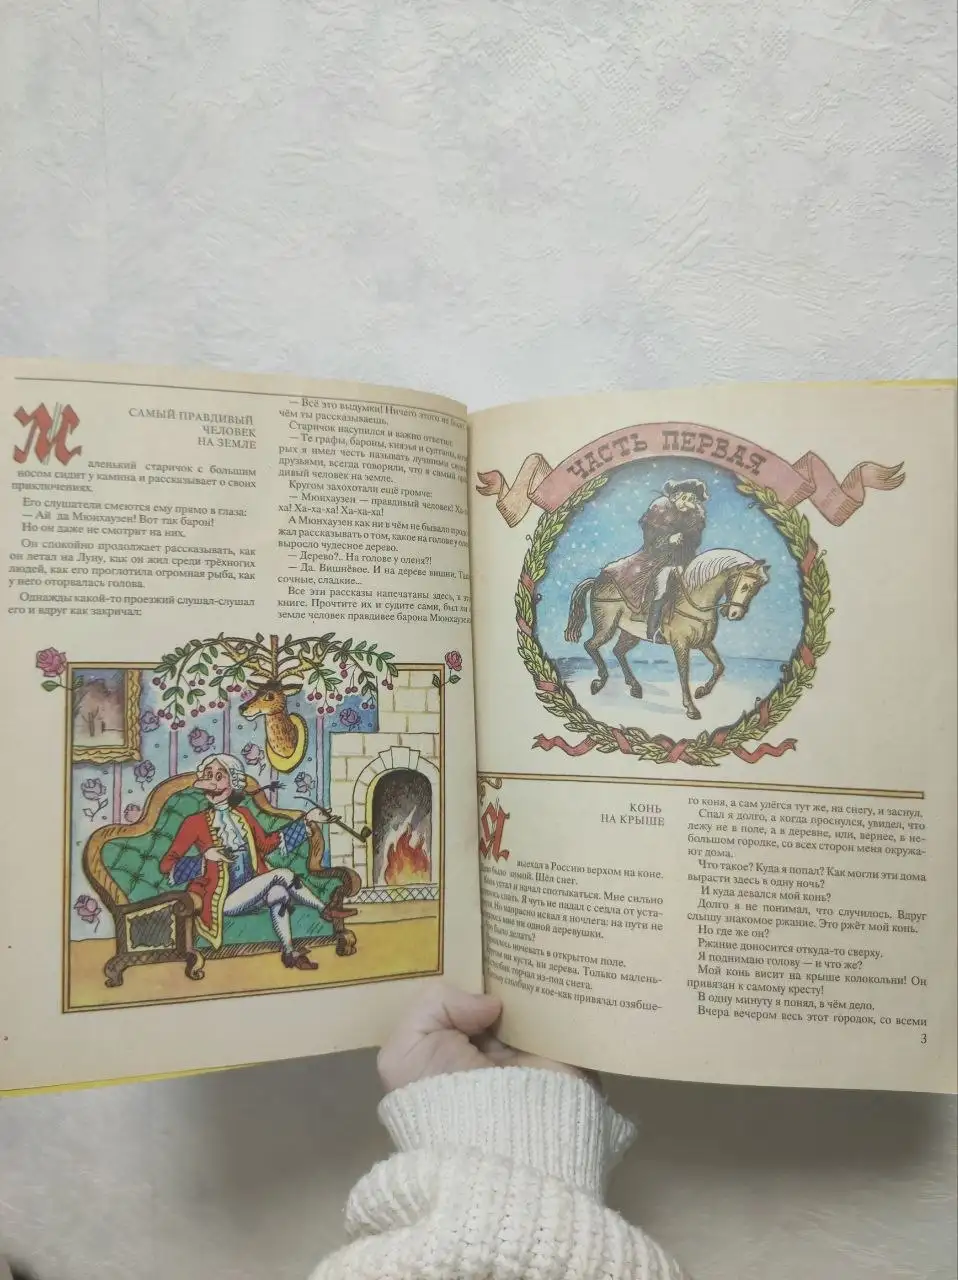 САМЫЙ ПРАВДИВЫЙ
ЧЕЛОВЕК
НА ЗЕМЛЕ
Маленький старичок с большим
носом сидит у камина и рассказывает о своих
приключениях.
Его слушатели смеются ему прямо в глаза:
— Ай да Мюнхаузен! Вот так барон!
Но он даже не смотрит на них.
Он спокойно продолжает рассказывать, как
он летал на Луну, как он жил среди трёхногих
людей, как его проглотила огромная рыба, как
у него оторвалась голова.
Однажды какой-то проезжий слушал-слушал
его и вдруг как закричал:
— Всё это выдумки! Ничего этого не было,
чём ты рассказываешь.
Старичок насупился и важно ответил:
— Те графы, бароны, князья и султаны,
рых я имел честь называть лучшими
друзьями, всегда говорили, что я самый
дивый человек на земле.
Кругом захохотали ещё громче:
— Мюнхаузен — правдивый человек! Ха-
ха! Ха-ха-ха! Ха-ха-ха!
А Мюнхаузен как ни в чём не бывало
жал рассказывать о том, какое на голове у
выросло чудесное дерево.
— Дерево?.. На голове у оленя?!
— Да. Вишнёвое. И на дереве вишни.
сочные, сладкие...
Все эти рассказы напечатаны здесь, в
книге. Прочтите их и судите сами, был ли
земле человек правдивее барона Мюнхаузена
ЧАСТЬ ПЕРВАЯ
КОНЬ
НА КРЫШЕ
Я выехал в Россию верхом на коне.
было зимой. Шёл снег.
устал и начал спотыкаться. Мне сильно
спать. Я чуть не падал с седла от уста-
Но напрасно искал я ночлега: на пути не
мне ни одной деревушки.
было делать?
ночевать в открытом поле.
ни куста, ни дерева. Только малень-
столбик торчал из-под снега.
столбику я кое-как привязал озябше-
го коня, а сам улёгся тут же, на снегу, и заснул.
Спал я долго, а когда проснулся, увидел, что
лежу не в поле, а в деревне, или, вернее, в не-
большом городке, со всех сторон меня окружа-
ют дома.
Что такое? Куда я попал? Как могли эти дома
вырасти здесь в одну ночь?
И куда девался мой конь?
Долго я не понимал, что случилось. Вдруг
слышу знакомое ржание. Это ржёт мой конь.
Но где же он?
Ржание доносится откуда-то сверху.
Я поднимаю голову — и что же?
Мой конь висит на крыше колокольни! Он
привязан к самому кресту!
В одну минуту я понял, в чём дело.
Вчера вечером весь этот городок, со всеми
3